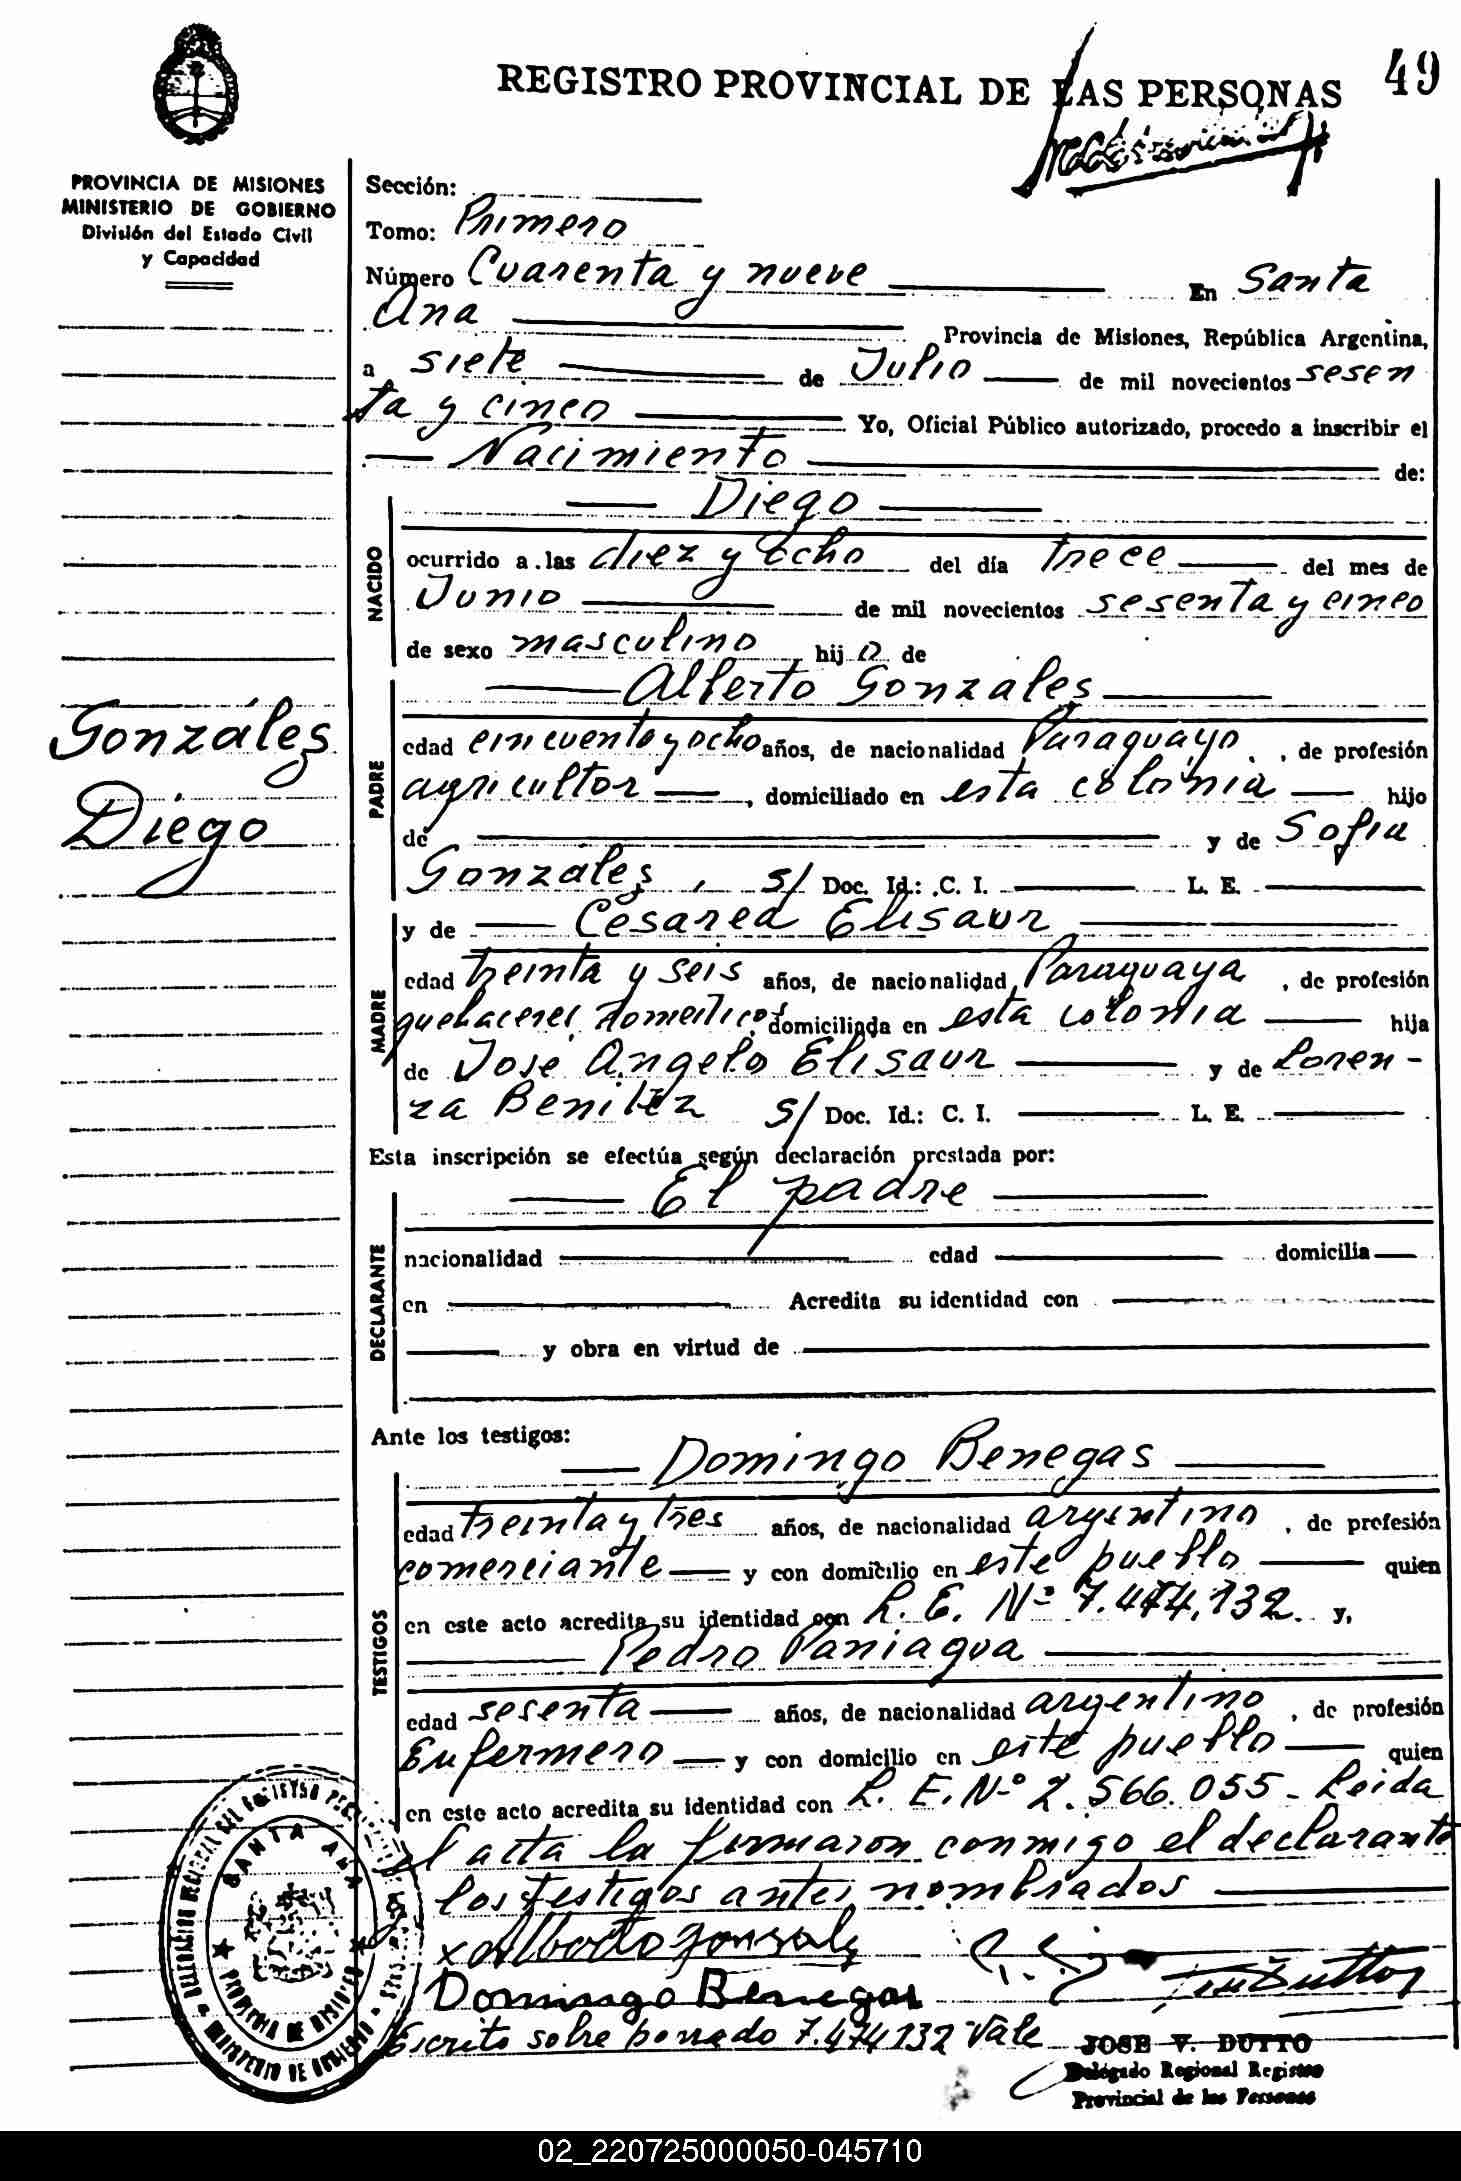 REGISTRO PROVINCIAL DE LAS PERSONAS 49
PROVINCIA DE MISIONES
MINISTERIO DE GOBIERNO
División del Estado Civil
y Capacidad
Gonzáles
Diego
Sección:
Tomo: Primero
Número Cuarenta y nueve En Santa
Ana Provincia de Misiones, República Argentina,
a siete de Julio de mil novecientos sesen
ta y cinco Yo, Oficial Público autorizado, procedo a inscribir el
Nacimiento de:
NACIDO
Diego
ocurrido a las diez y ocho del día trece del mes de
Junio de mil novecientos sesenta y cinco
de sexo masculino hijo de
PADRE
Alberto Gonzales
edad cincuenta y ocho años, de nacionalidad Paraguayo, de profesión
agricultor, domiciliado en esta colonia hijo
de y de Sofia
Gonzáles, S/ Doc. Id.: C. I. L. E.
MADRE
y de Cesarea Elisaur
edad treinta y seis años, de nacionalidad Paraguaya, de profesión
quehaceres domesticos, domiciliada en esta colonia hija
de José Angelo Elisaur y de Loren-
za Benitez S/ Doc. Id.: C. I. L. E.
Esta inscripción se efectúa según declaración prestada por:
DECLARANTE
El padre
nacionalidad edad domicilia
en Acredita su identidad con
y obra en virtud de
Ante los testigos:
TESTIGOS
Domingo Benegas
edad treinta y tres años, de nacionalidad argentino, de profesión
comerciante y con domicilio en este pueblo quien
en este acto acredita su identidad con L. E. Nº 7.474.132. y,
Pedro Paniagua
edad sesenta años, de nacionalidad argentino, de profesión
Enfermero y con domicilio en este pueblo quien
en este acto acredita su identidad con L. E. Nº 2.566.055- Leida
el acta la firmaron conmigo el declarante
los testigos antes nombrados
x Alberto Gonsalz
Domingo Benegas
Escrito sobre borrado 7.474132 Vale
JOSE V. DUTTO
Delegado Regional Registro
Provincial de las Personas
SANTA ANA
PROVINCIA DE MISIONES
MINISTERIO DE GOBIERNO
02_220725000050-045710